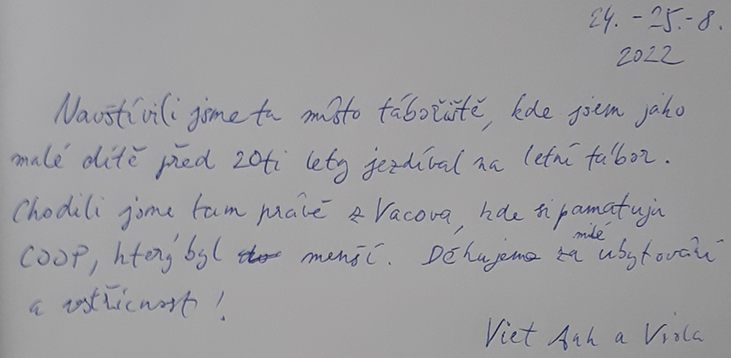 24. - 25. - 8.
2022
Navštívili jsme tu místo tábořiště, kde jsem jako
malé dítě před 20ti lety jezdíval na letní tábor.
Chodili jsme tam právě z Vacova, kde si pamatuju
COOP, který byl menší. Děkujeme za milé ubytování
a vstřícnost!
Viet Anh a Viola